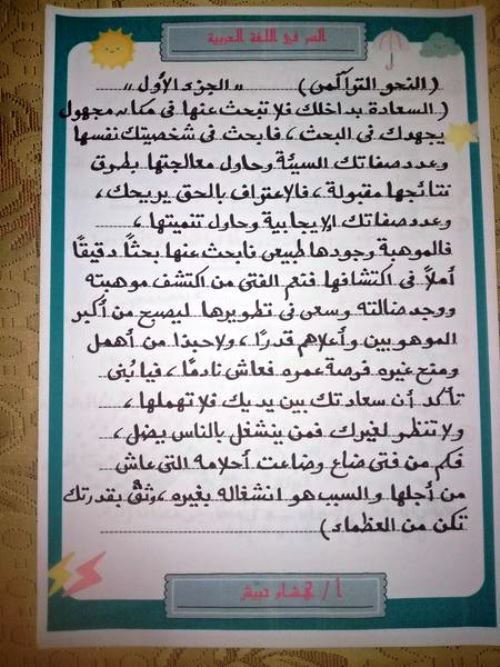 السر في اللغة العربية
(النحو التراكمي) ،، الجزء الأول ،،
(السعادة بداخلك فلا تبحث عنها في مكان مجهول
يجهدك في البحث، فابحث في شخصيتك نفسها
وعدد صفاتك السيئة وحاول معالجتها بطرق
نتائجها مقبولة، فالاعتراف بالحق يريحك،
وعدد صفاتك الإيجابية وحاول تنميتها،
فالموهبة وجودها طبيعي فابحث عنها بحثًا دقيقًا
أملًا في اكتشافها فنعم الفتى من اكتشف موهبته
ووجد ضالته وسعى في تطويرها ليصبح من أكبر
الموهوبين وأعلاهم قدرًا، ولا حبذا من أهمل
ومنح غيره فرصة عمره فعاش نادمًا، فيا بُني
تأكد أن سعادتك بين يديك فلا تهملها،
ولا تنظر لغيرك فمن ينشغل بالناس يضل،
فكم من فتى ضاع وضاعت أحلامه التي عاش
من أجلها والسبب هو انشغاله بغيره، وثقْ بقدرتك
تكن من العظماء)
أ / هشام حبيش